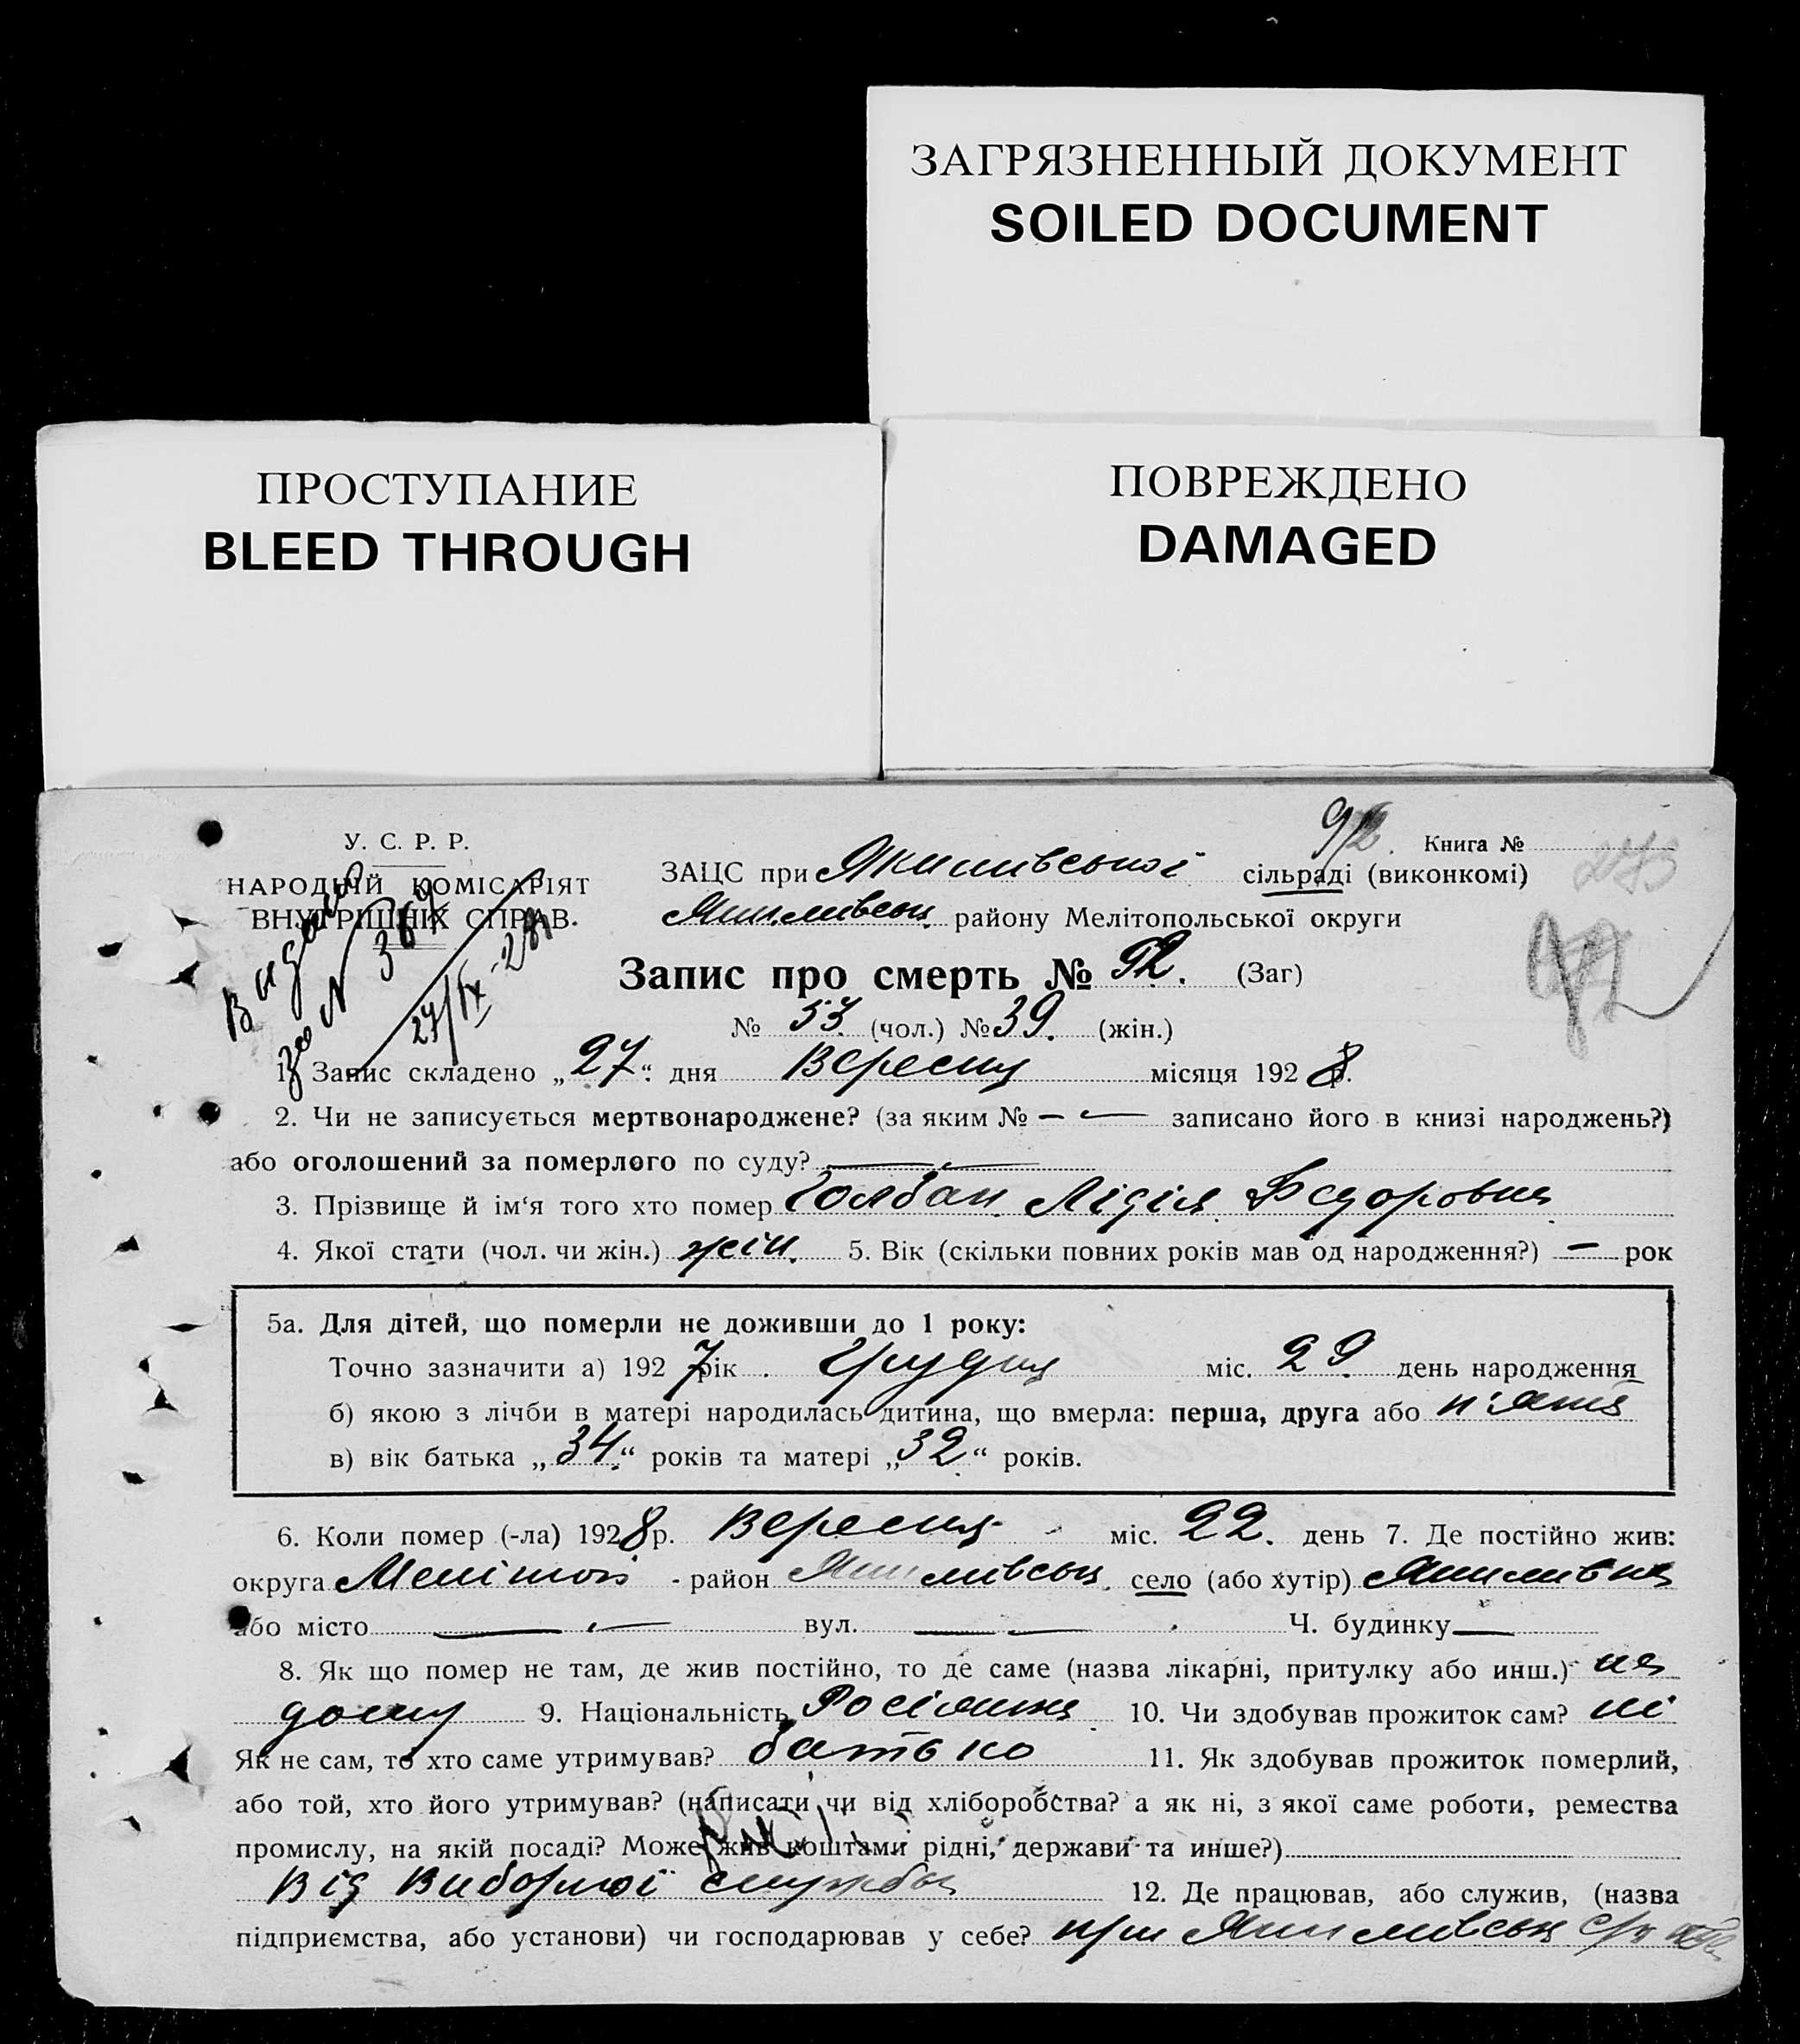 ЗАГРЯЗНЕННЫЙ ДОКУМЕНТ
SOILED DOCUMENT
ПРОСТУПАНИЕ
BLEED THROUGH
ПОВРЕЖДЕНО
DAMAGED
У. С. Р. Р.
НАРОДНІЙ КОМІСАРІЯТ
ВНУТРІШНІХ СПРАВ.
Видано
за № 367
27/IX-28
92
Книга №
273
ЗАЦС при Якимівської сільраді (виконкомі)
Якимівськ. району Мелітопольської округи
92
Запис про смерть № 92. (Заг)
№ 53. (чол.) № 39. (жін.)
1. Запис складено „27“ дня Вересня місяця 1928 р.
2. Чи не записується мертвонароджене? (за яким № — записано його в книзі народжень?)
або оголошений за померлого по суду? —
3. Прізвище й ім‘я того хто помер Голбан Лідія Федоровна
4. Якої стати (чол. чи жін.) жін. 5. Вік (скільки повних років мав од народження?) — рок
5а. Для дітей, що померли не доживши до 1 року:
Точно зазначити а) 1927 рік Грудня міс. 29. день народження
б) якою з лічби в матері народилась дитина, що вмерла: перша, друга або п'ята
в) вік батька „34“ років та матері „32“ років.
6. Коли помер (-ла) 1928 р. Вересня міс. 22. день 7. Де постійно жив:
округа Мелітоп - район Якимівськ. село (або хутір) Якимівка
або місто — вул. — Ч. будинку —
8. Як що помер не там, де жив постійно, то де саме (назва лікарні, притулку або инш.) на
дому 9. Національність Росіянка 10. Чи здобував прожиток сам? ні
Як не сам, то хто саме утримував? батько 11. Як здобував прожиток померлий,
або той, хто його утримував? (написати чи від хліборобства? а як ні, з якої саме роботи, ремества
промислу, на якій посаді? Може жив коштами рідні, держави та инше?)
Від Виборної служби 12. Де працював, або служив, (назва
підприємства, або установи) чи господарював у себе? при Якимівськ с/г